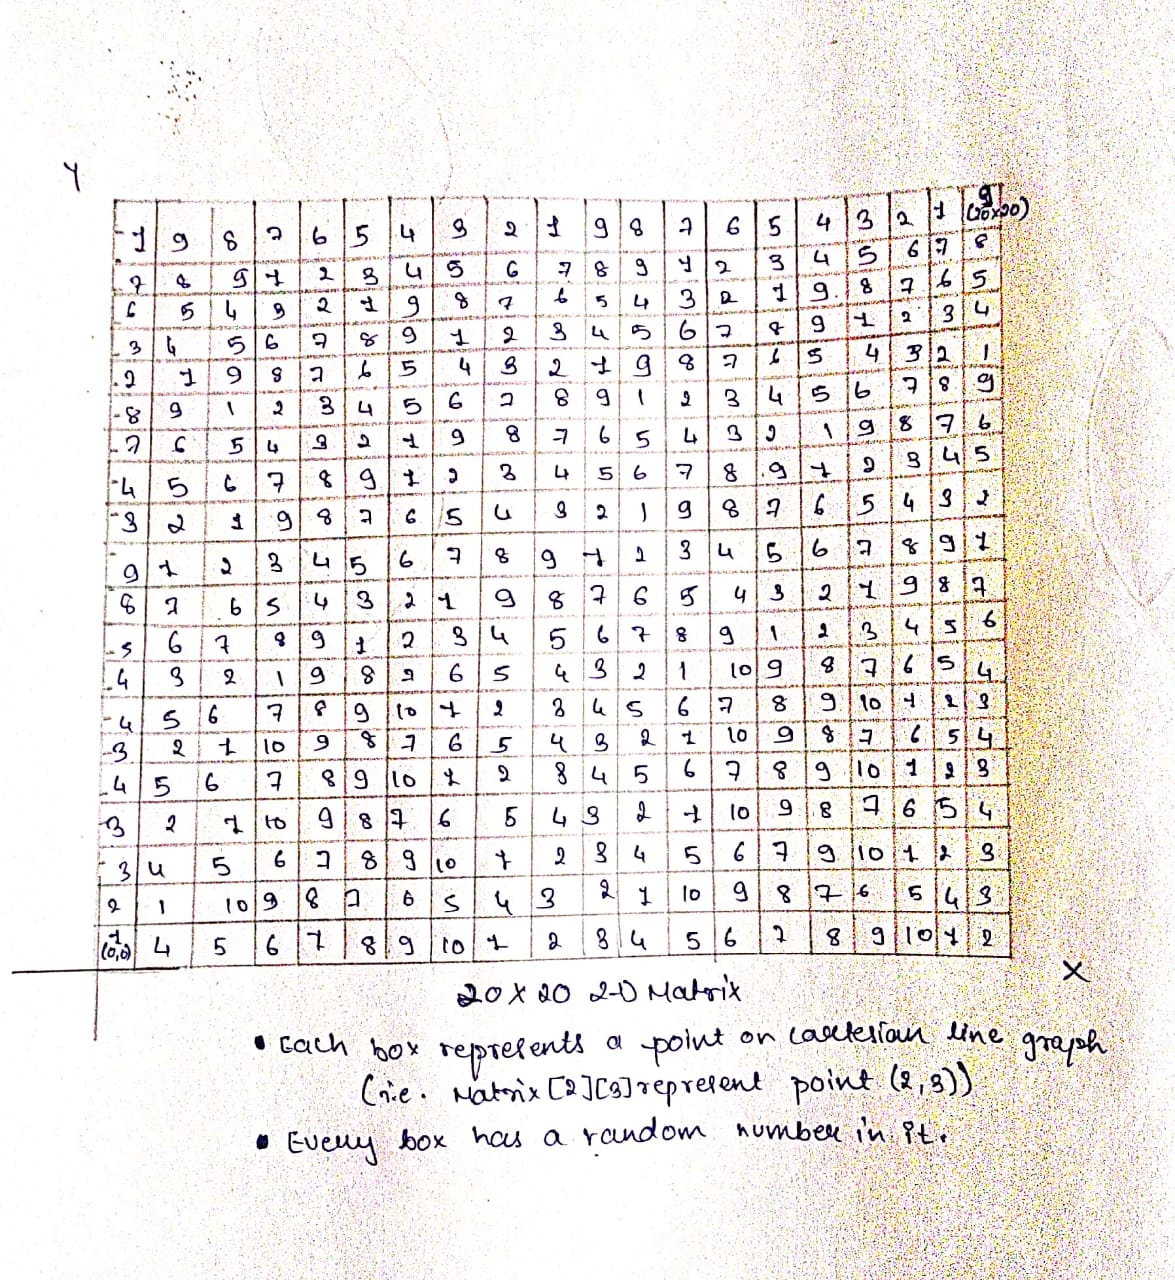 Y
1 9 8 7 6 5 4 3 2 1 9 8 7 6 5 4 3 2 1 9
(20x20)
7 8 9 1 2 3 4 5 6 7 8 9 1 2 3 4 5 6 7 8
6 5 4 3 2 1 9 8 7 6 5 4 3 2 1 9 8 7 6 5
3 4 5 6 7 8 9 1 2 3 4 5 6 7 8 9 1 2 3 4
2 1 9 8 7 6 5 4 3 2 1 9 8 7 6 5 4 3 2 1
8 9 1 2 3 4 5 6 7 8 9 1 2 3 4 5 6 7 8 9
7 6 5 4 3 2 1 9 8 7 6 5 4 3 2 1 9 8 7 6
4 5 6 7 8 9 1 2 3 4 5 6 7 8 9 1 2 3 4 5
3 2 1 9 8 7 6 5 4 3 2 1 9 8 7 6 5 4 3 2
9 1 2 3 4 5 6 7 8 9 1 2 3 4 5 6 7 8 9 1
8 7 6 5 4 3 2 1 9 8 7 6 5 4 3 2 1 9 8 7
5 6 7 8 9 1 2 3 4 5 6 7 8 9 1 2 3 4 5 6
4 3 2 1 9 8 7 6 5 4 3 2 1 10 9 8 7 6 5 4
4 5 6 7 8 9 10 1 2 3 4 5 6 7 8 9 10 1 2 3
3 2 1 10 9 8 7 6 5 4 3 2 1 10 9 8 7 6 5 4
4 5 6 7 8 9 10 1 2 3 4 5 6 7 8 9 10 1 2 3
3 2 1 10 9 8 7 6 5 4 3 2 1 10 9 8 7 6 5 4
3 4 5 6 7 8 9 10 1 2 3 4 5 6 7 9 10 1 2 3
2 1 10 9 8 7 6 5 4 3 2 1 10 9 8 7 6 5 4 3
1 4 5 6 7 8 9 10 1 2 3 4 5 6 7 8 9 10 1 2
(0,0)
X
20 X 20 2-D Matrix
• Each box represents a point on cartesian line graph
(i.e. Matrix [2][3] represent point (2,3))
• Every box has a random number in it.